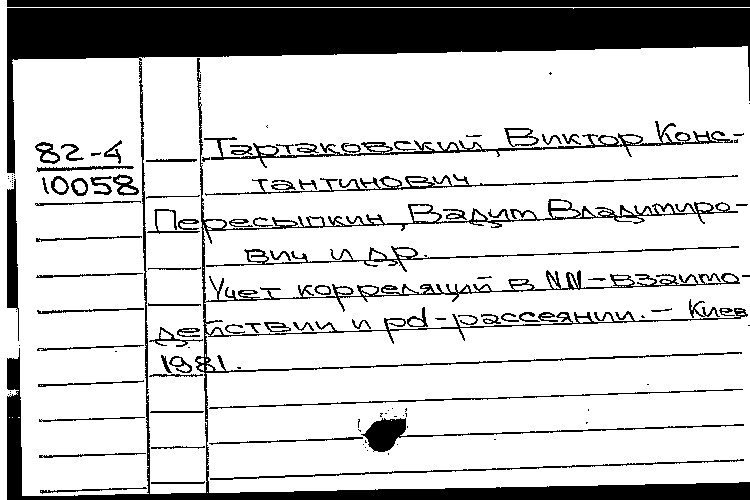 82-4
10058
Тартаковский, Виктор Конс-
тантинович.
Пересыпкин, Вадим Владимиро-
вич и др.
Учет корреляций в NN-взаимо-
действии и pd-рассеянии. - Киев
1981.